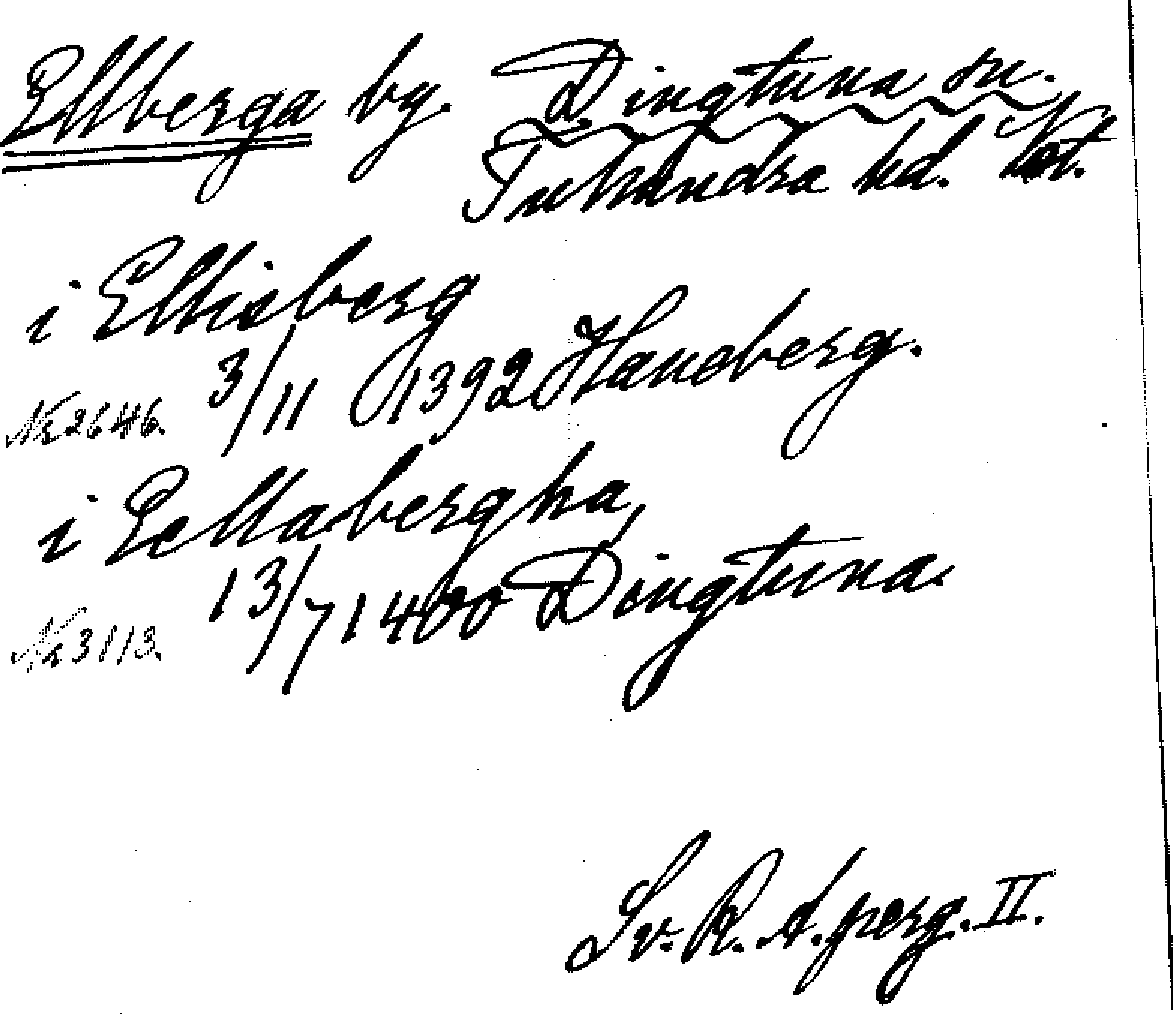 Ellberga by. Dingtuna sn.
Tuhundra hd. Vst.
i Ellisberg
Nr 2646. 3/11 1392 Haneberg.
i Eellabergha,
Nr 3113. 13/7 1400 Dingtuna.
Sv. R. A. perg. II.